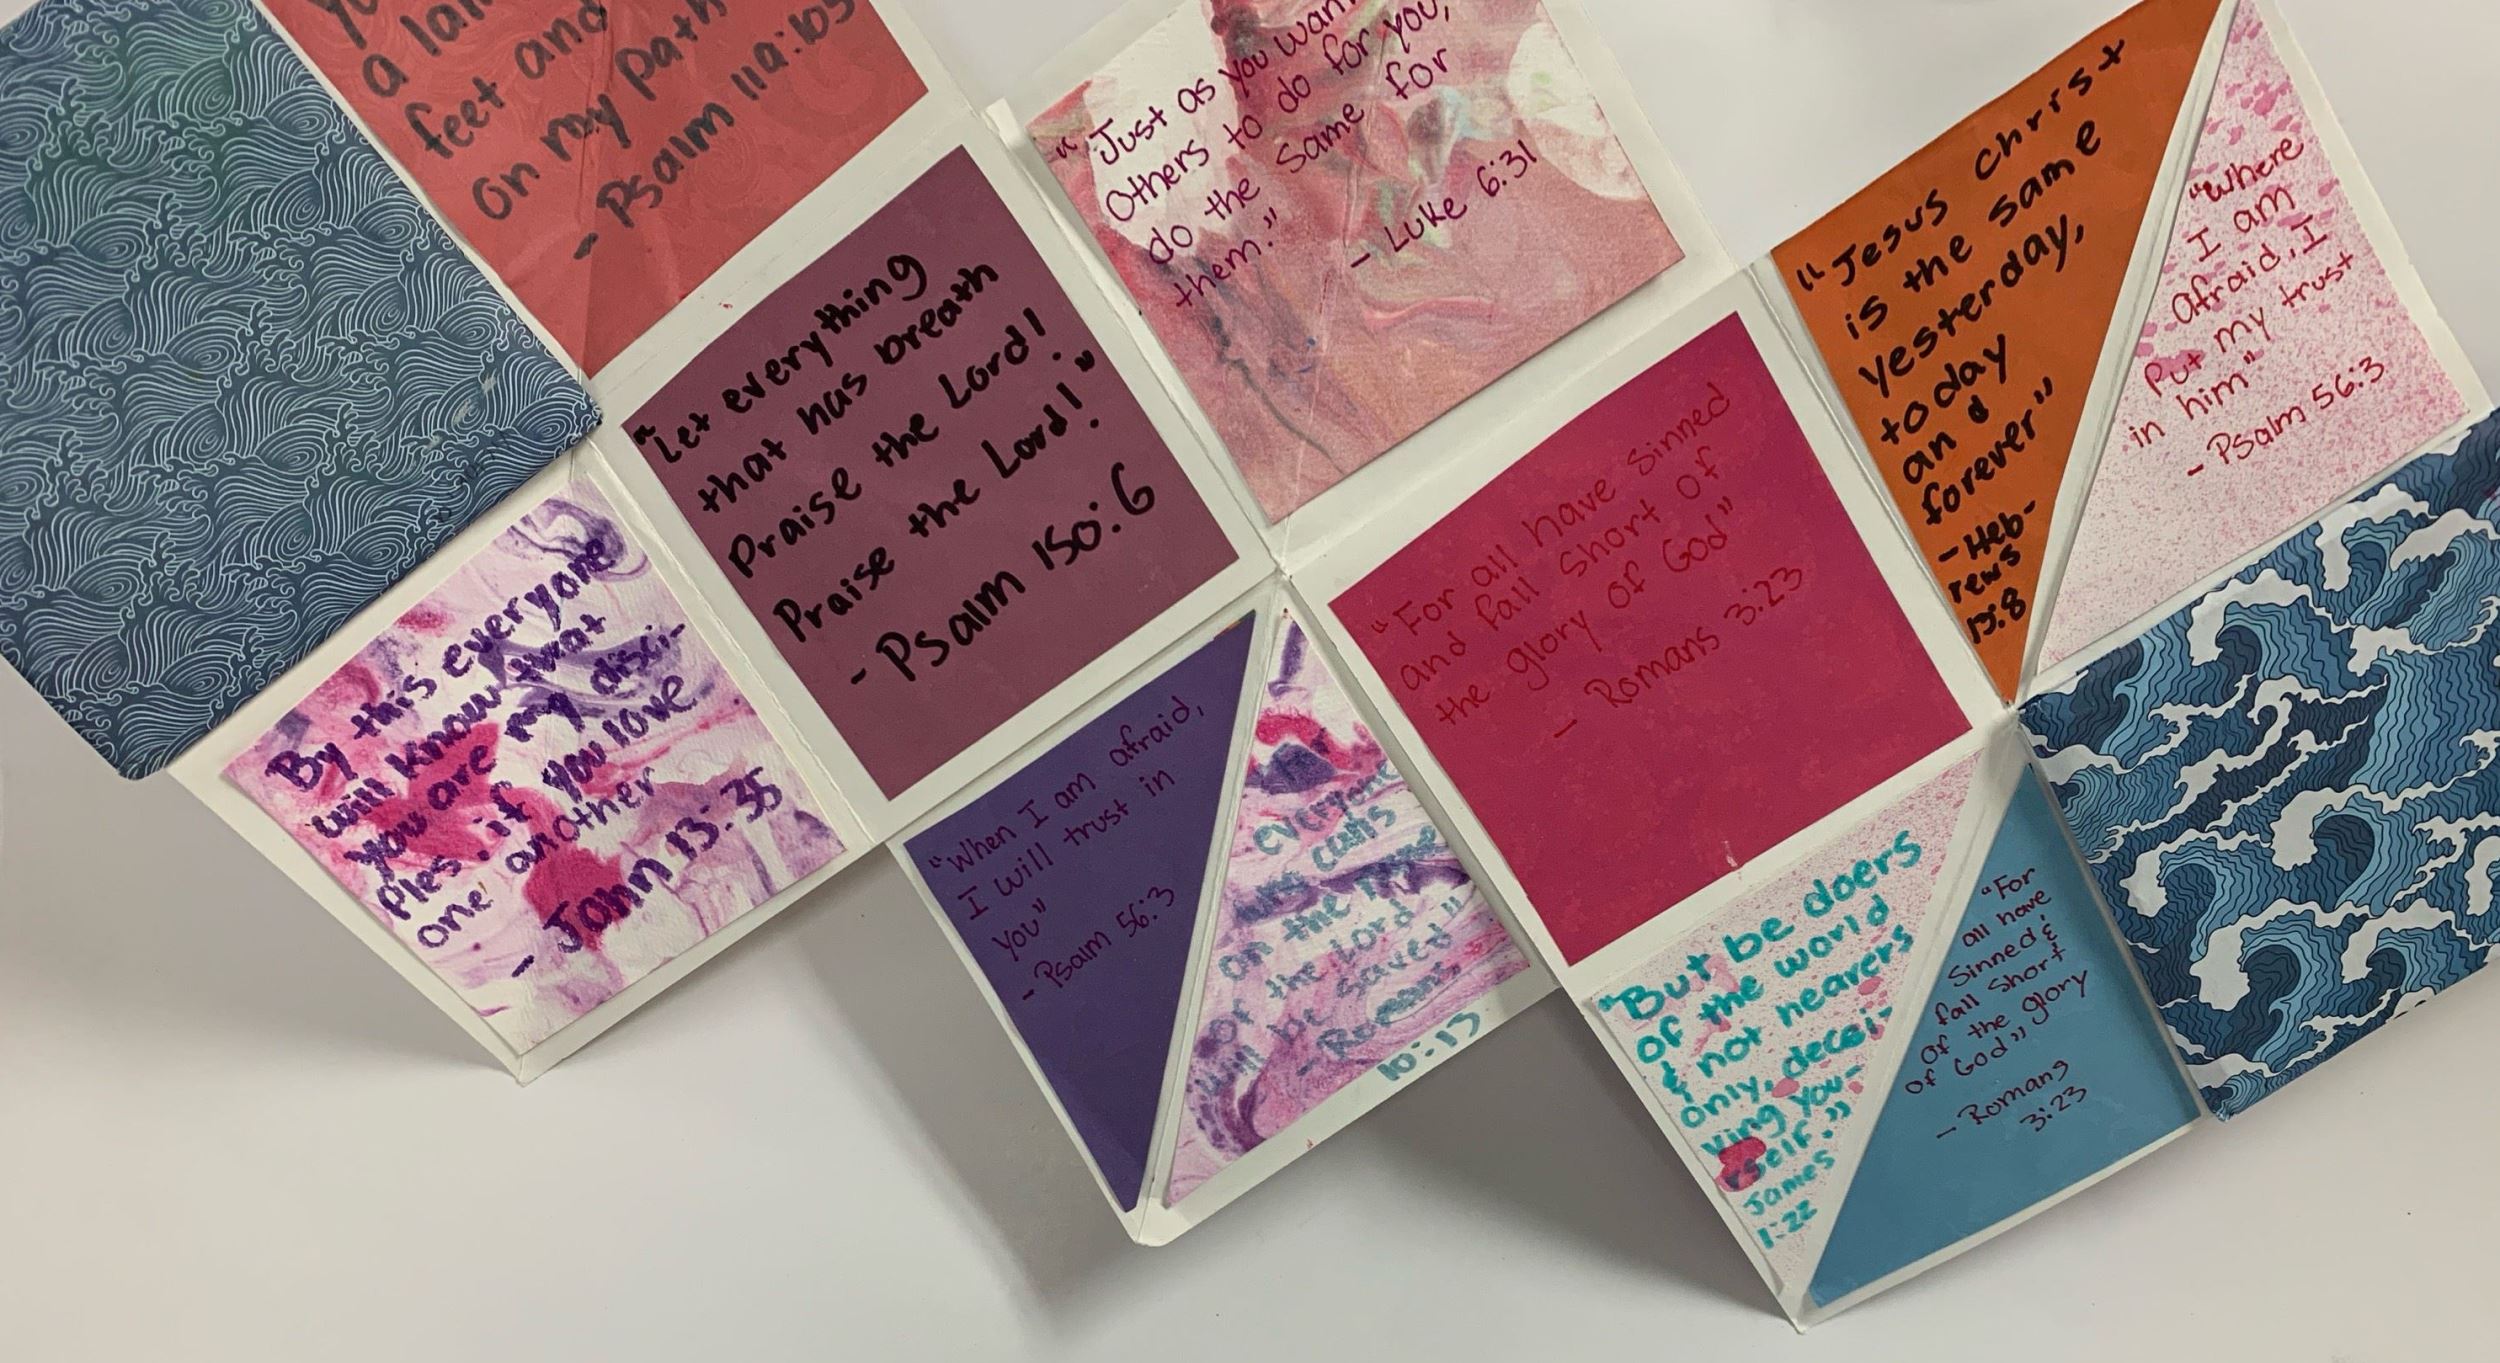 a
feet and
on my path
- Psalm 119:105
"Just as you want
Others to do for you,
do the same for
them."
- Luke 6:31
"Jesus Christ
is the same
yesterday,
today
and
forever"
- Heb-
rews
13:8
"Where
I am
afraid, I
Put my trust
in him"
- Psalm 56:3
"Let everything
that has breath
Praise the Lord!
Praise the Lord!"
- Psalm 150:6
"For all have sinned
and fall short of
the glory of God"
- Romans 3:23
By this everyone
will know that
you are my disci-
ples, if you love
one another
- John 13:35
"When I am afraid,
I will trust in
you"
- Psalm 56:3
everyone
who calls
on the name
of the Lord
will be saved"
- Romans
10:13
"But be doers
of the world
& not hearers
only, decei-
ving you-
rself."
James
1:22
"For
all have
Sinned &
fall short
of the glory
of God"
- Romans
3:23